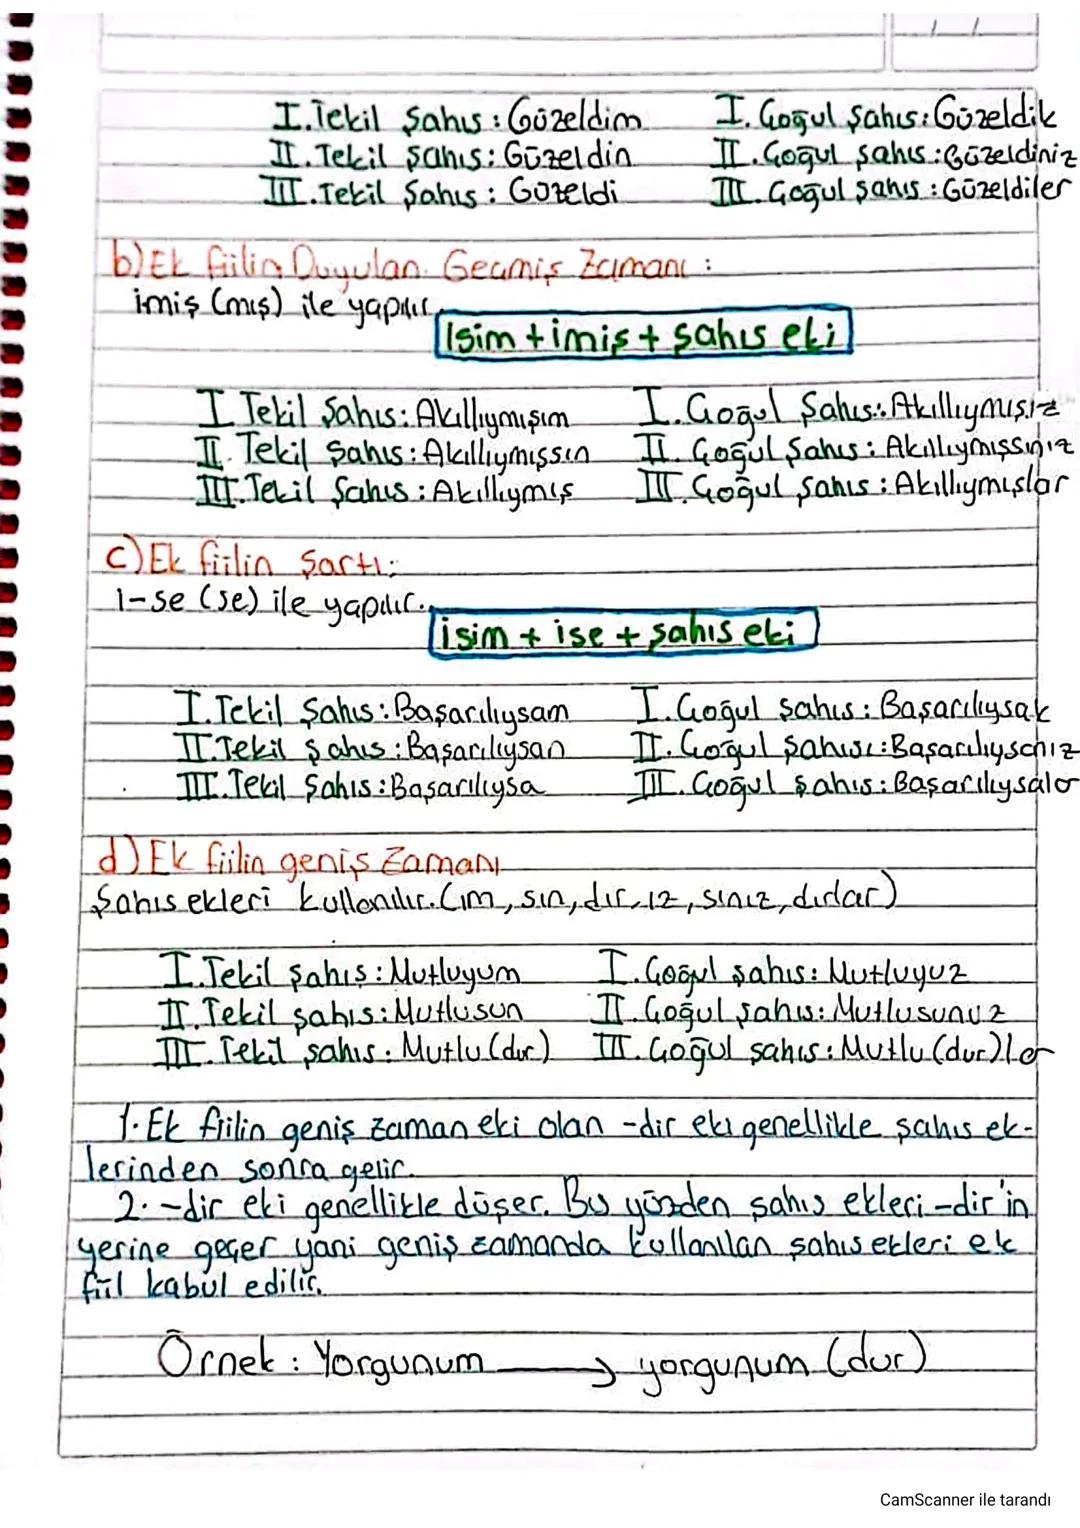 / /
I.Tekil Şahıs : Güzeldim I. Çoğul Şahıs: Güzeldik
II.Tekil Şahıs: Güzeldin II.Çoğul Şahıs :Güzeldiniz
III.Tekil Şahıs : Güzeldi III.Çoğul Şahıs :Güzeldiler
b) Ek fiilin Duyulan Geçmiş Zamanı :
imiş (mış) ile yapılır.
İsim + imiş + şahıs eki
I Tekil Şahıs: Akıllıymışım I.Çoğul Şahıs: Akıllıymışız
II. Tekil Şahıs: Akıllıymışsın II. Çoğul Şahıs : Akıllıymışsınız
III.Tekil Şahıs : Akıllıymış III.Çoğul Şahıs : Akıllıymışlar
c) Ek fiilin Şartı:
i-se (se) ile yapılır.
isim + ise + şahıs eki
I.Tekil Şahıs: Başarılıysam I.Çoğul Şahıs: Başarılıysak
II.Tekil Şahıs :Başarılıysan II.Çoğul Şahıs: Başarılıysanız
III.Tekil Şahıs:Başarılıysa III.Çoğul Şahıs: Başarılıysalar
d) Ek fiilin geniş Zamanı
Şahıs ekleri kullanılır.(ım, sın, dır, ız, sınız, dırlar)
I.Tekil Şahıs : Mutluyum I.Çoğul Şahıs: Mutluyuz
II.Tekil Şahıs: Mutlusun II.Çoğul Şahıs: Mutlusunuz
III.Tekil Şahıs: Mutlu(dur) III.Çoğul Şahıs: Mutlu(dur)lar
1. Ek fiilin geniş zaman eki olan -dir eki genellikle şahıs ek-
lerinden sonra gelir.
2. -dir eki genellikle düşer. Bu yüzden şahıs ekleri -dir'in
yerine geçer yani geniş zamanda kullanılan şahıs ekleri ek
fiil kabul edilir.
Örnek : Yorgunum → yorgunum (dur)
CamScanner ile tarandı